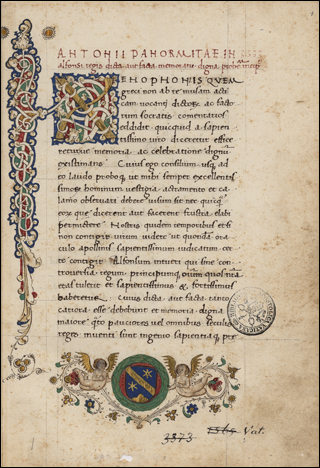 ANTONII PANORMITAE IN
alfonsi regis dicta aut facta memoratu digna prohemium
XENOPHONIS QUEM
greci non ab re musam acti
cam vocant dictorum ac facto
rum socratis comentarios
eddidit quicquid a sapien
tissimo viro diceretur efficere
returve memoria ac celebratione dignum
existimans Cuius ego consilium usque ad
eo laudo proboque ut mihi semper excellenti
simorum hominum vestigia
observari debere visum sit nec quicquam
eorum que dicerent aut facerent frustra elabi
permittere Nostris quidem temporibus et si
non contigit virum videre ut quondam ora
culo apollinis sapientissimum iudicatum cer
te contigit Alfonsum intueri qui sine con
troversia regum principumque omnium quos nostra
etas tulerit et sapientissimus & fortissimus
haberetur Cuius dicta aut facta tanto
cariora esse debebunt et memoria digna
maiore quanto pauciores vel omnibus seculis
reges inventi sunt ingenio sapientiaque pre
3373 1364 Vat.